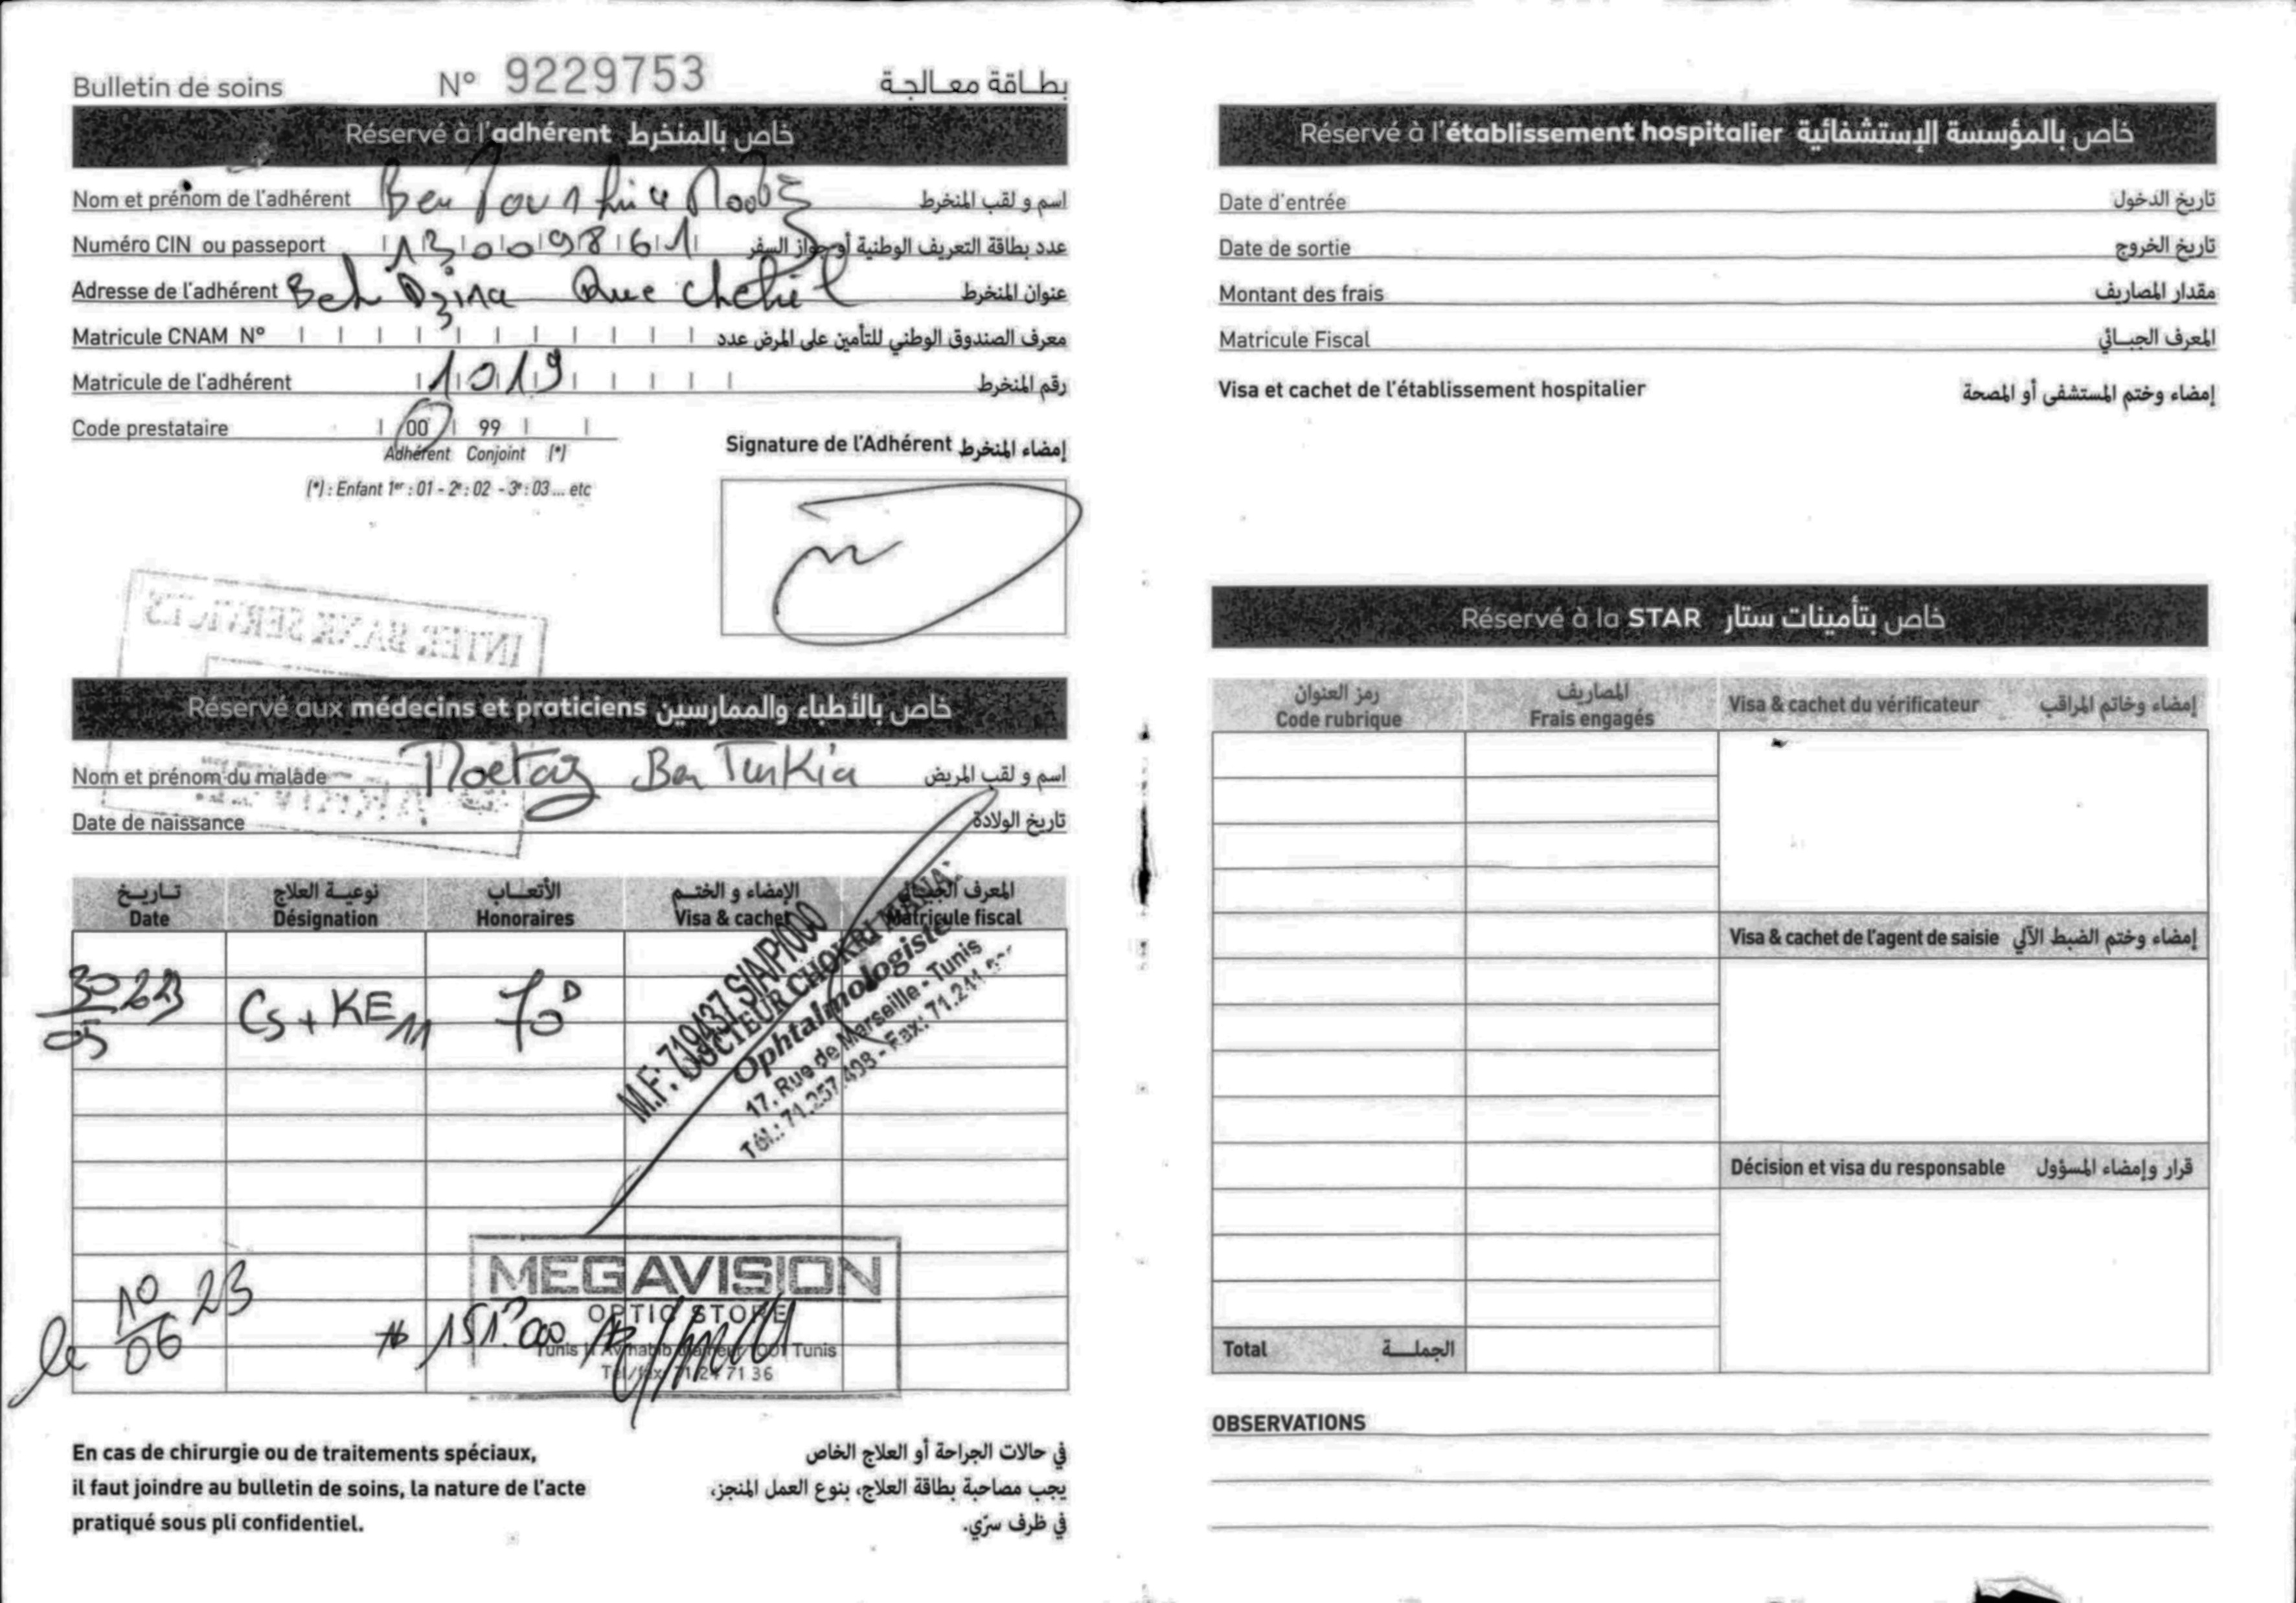 Bulletin de soins N° 9229753 بطاقة معالجة
Réservé à l'adhérent خاص بالمنخرط
Nom et prénom de l'adhérent Ben اسم و لقب المنخرط
Numéro CIN ou passeport 13009861 عدد بطاقة التعريف الوطنية أو جواز السفر
Adresse de l'adhérent Rue عنوان المنخرط
Matricule CNAM N° معرف الصندوق الوطني للتأمين على المرض عدد
Matricule de l'adhérent 1019 رقم المنخرط
Code prestataire 00 99
Adhérent Conjoint (*)
(*) : Enfant 1er : 01 - 2e : 02 - 3e : 03 ... etc
Signature de l'Adhérent إمضاء المنخرط
INTER BANK SERVICES
Réservé aux médecins et praticiens خاص بالأطباء والممارسين
Nom et prénom du malade Moetaz Ben Turkia اسم و لقب المريض
Date de naissance تاريخ الولادة
تاريخ نوعية العلاج الأتعاب الإمضاء و الختم المعرف الجبائي
Date Désignation Honoraires Visa & cachet Matricule fiscal
30/05 23 Cs + KE11 70D
M.F: 719437 S/A/P/000
DOCTEUR CHOKRI
Ophtalmologiste
17, Rue de Marseille - Tunis
Tél.: 71.257.498 - Fax: 71.241
MEGAVISION
OPTIC STORE
Tunis
le 10/06 23 # 151D000
En cas de chirurgie ou de traitements spéciaux,
il faut joindre au bulletin de soins, la nature de l'acte
pratiqué sous pli confidentiel.
في حالات الجراحة أو العلاج الخاص
يجب مصاحبة بطاقة العلاج، بنوع العمل المنجز،
في ظرف سرّي.
Réservé à l'établissement hospitalier خاص بالمؤسسة الإستشفائية
Date d'entrée تاريخ الدخول
Date de sortie تاريخ الخروج
Montant des frais مقدار المصاريف
Matricule Fiscal المعرف الجبائي
Visa et cachet de l'établissement hospitalier إمضاء وختم المستشفى أو المصحة
Réservé à la STAR خاص بتأمينات ستار
رمز العنوان المصاريف
Code rubrique Frais engagés
Visa & cachet du vérificateur إمضاء وخاتم المراقب
Visa & cachet de l'agent de saisie إمضاء وختم الضبط الآلي
Décision et visa du responsable قرار وإمضاء المسؤول
Total الجملة
OBSERVATIONS